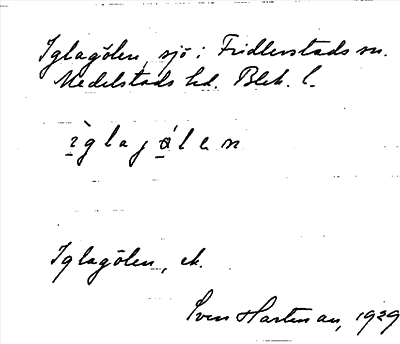 Iglagölen, sjö i Fridlevstads sn.
Medelstads hd. Blek. l.
ìglajǿlen
Iglagölen, ek.
Sven Hartman, 1929